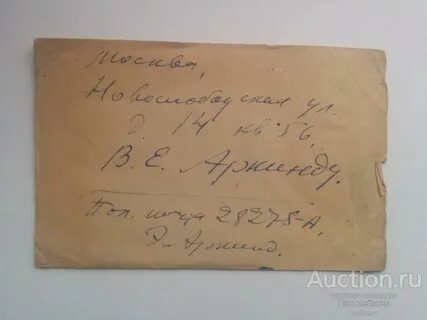 Москва,
Новослободская ул.
д. 14 кв 56,
В. Е. Аркинду.
Пол. почта 28278-А,
Э. Аркинд.
Auction.ru